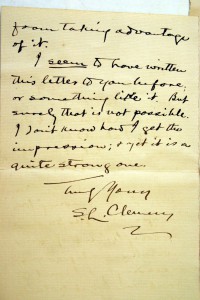 from taking advantage
of it.
I seem to have written
this letter to you before,
or something like it. But
surely that is not possible.
I don't know how I get the
impression; & yet it is a
quite strong one.
Truly Yours
S. L. Clemens